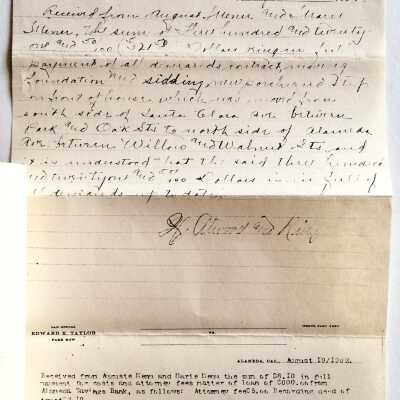 Received from August and Marie
the sum of Three hundred and twenty
one and 50/100 (321 50) Dollars being in full
payment of all demands, contract, moving
foundation and sidding, new porch and Steps
on front of house which was moved from
south side of Santa Clara Ave between
Park and Oak Sts to north side of Alameda
Ave between Willow and Walnut Sts, and
it is understood that the said three hundred
and twenty one and 50/100 Dollars is in full of
all demands up to date.
Atwood and King
LAW OFFICES
EDWARD K. TAYLOR
PARK ROW
VS.
ALAMEDA, CAL., August 19/1902.
Received from Auguste and Marie the sum of $8.10 in full
payment for costs and attorney fees matter of loan of from
Alameda Savings Bank, as follows: Attorney fee $5.00 Recording deed of